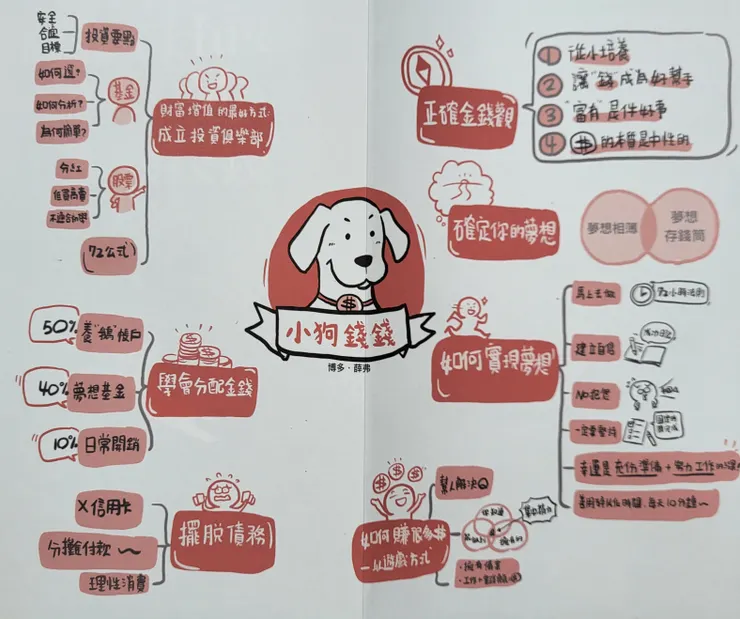 小狗錢錢
博多·薛弗
正確金錢觀
1 從小培養
2 讓"錢"成為好幫手
3 "富有"是件好事
4 $的本質是中性的
確定你的夢想
夢想相簿
夢想
存錢筒
如何實現夢想
馬上去做
72小時法則
建立自信
成功日記
NO拖延
一定要堅持
幸運是充份準備+努力工作的
每天10分鐘~
如何賺很多$
—以遊戲方式
幫人解決Q
擁有
財富增值的最好方式:
成立投資俱樂部
投資要點
安全
合宜
目標
基金
如何選?
如何分析?
為何簡單?
股票
分紅
低買高賣
不適合初學
72公式
學會分配金錢
50%
養"鵝"帳戶
40%
夢想基金
10%
日常開銷
擺脫債務
X信用卡
分攤付款~
理性消費